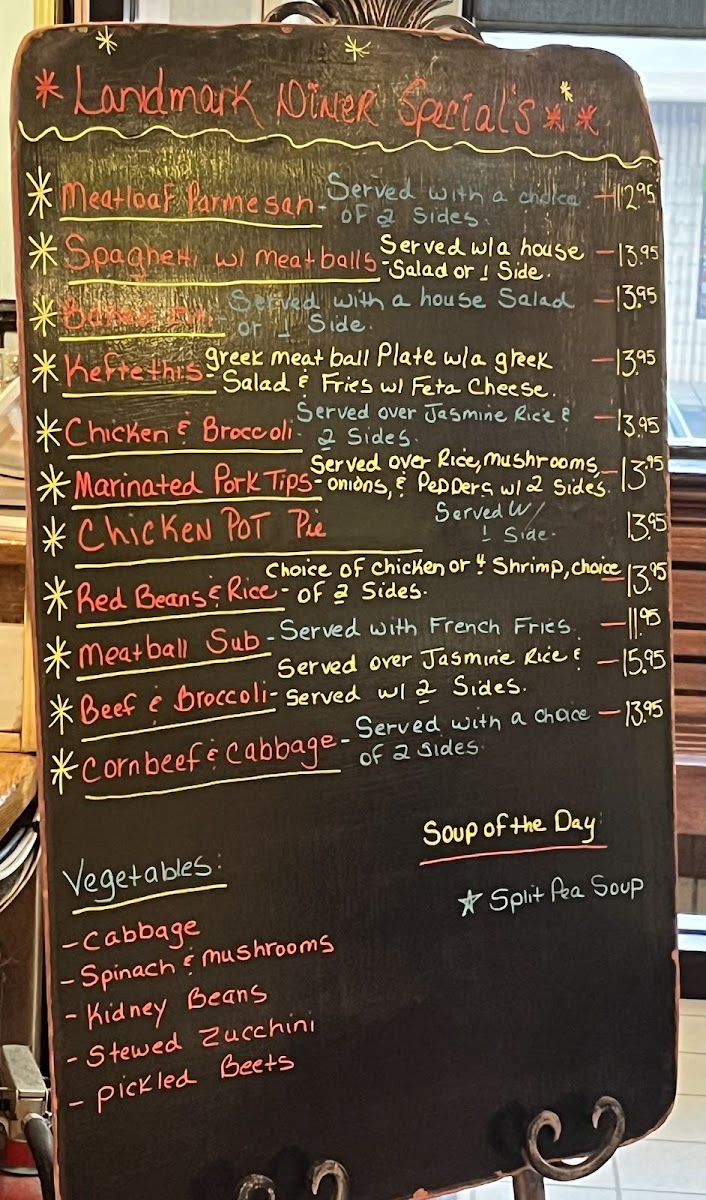 * Landmark Diner Special's * *
* Meatloaf Parmesan - Served with a choice - 12.95
of 2 Sides.
* Spaghetti w/ meatballs - Served w/a house - 13.95
Salad or 1 Side.
* Baked - Served with a house Salad - 13.95
or 1 Side.
* Keftethis - greek meat ball Plate w/a greek - 13.95
Salad & Fries w/ Feta Cheese.
* Chicken & Broccoli - Served over Jasmine Rice & - 13.95
2 Sides.
* Marinated Pork Tips - Served over Rice, mushrooms, - 13.95
onions, & Peppers w/ 2 Sides.
* Chicken Pot Pie Served w/ 13.95
1 Side.
* Red Beans & Rice - Choice of chicken or 4 Shrimp, choice - 13.95
of 2 Sides.
* Meatball Sub - Served with French Fries. - 11.95
* Beef & Broccoli - Served over Jasmine Rice & - 15.95
Served w/ 2 Sides.
* Cornbeef & Cabbage - Served with a choice - 13.95
of 2 Sides.
Soup of the Day:
☆ Split Pea Soup
Vegetables:
- Cabbage
- Spinach & mushrooms
- Kidney Beans
- Stewed Zucchini
- Pickled Beets